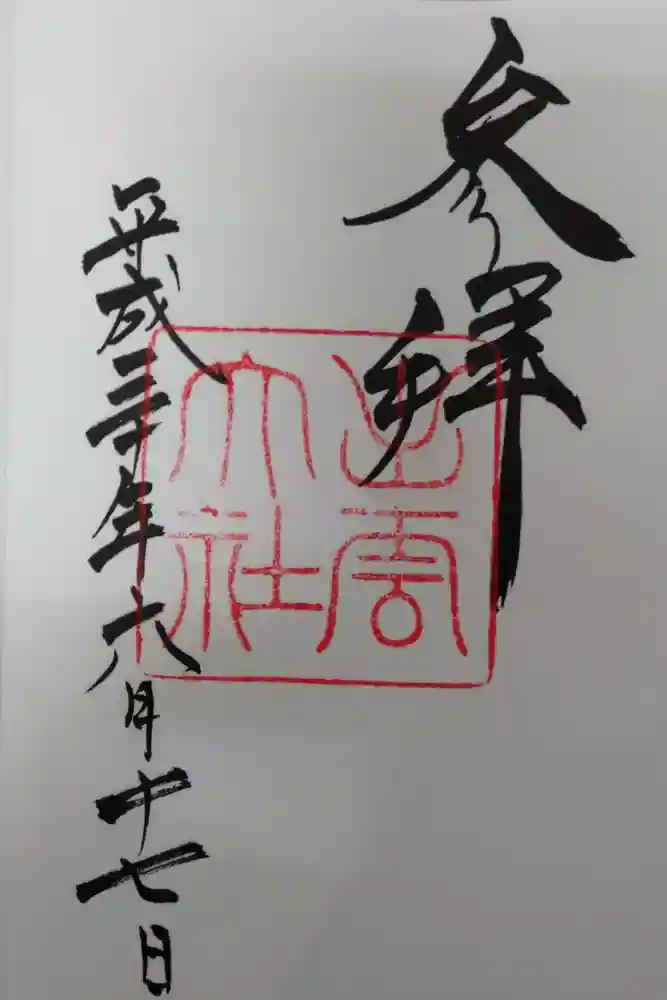 参拝
出雲
大社
平成三十年六月十七日